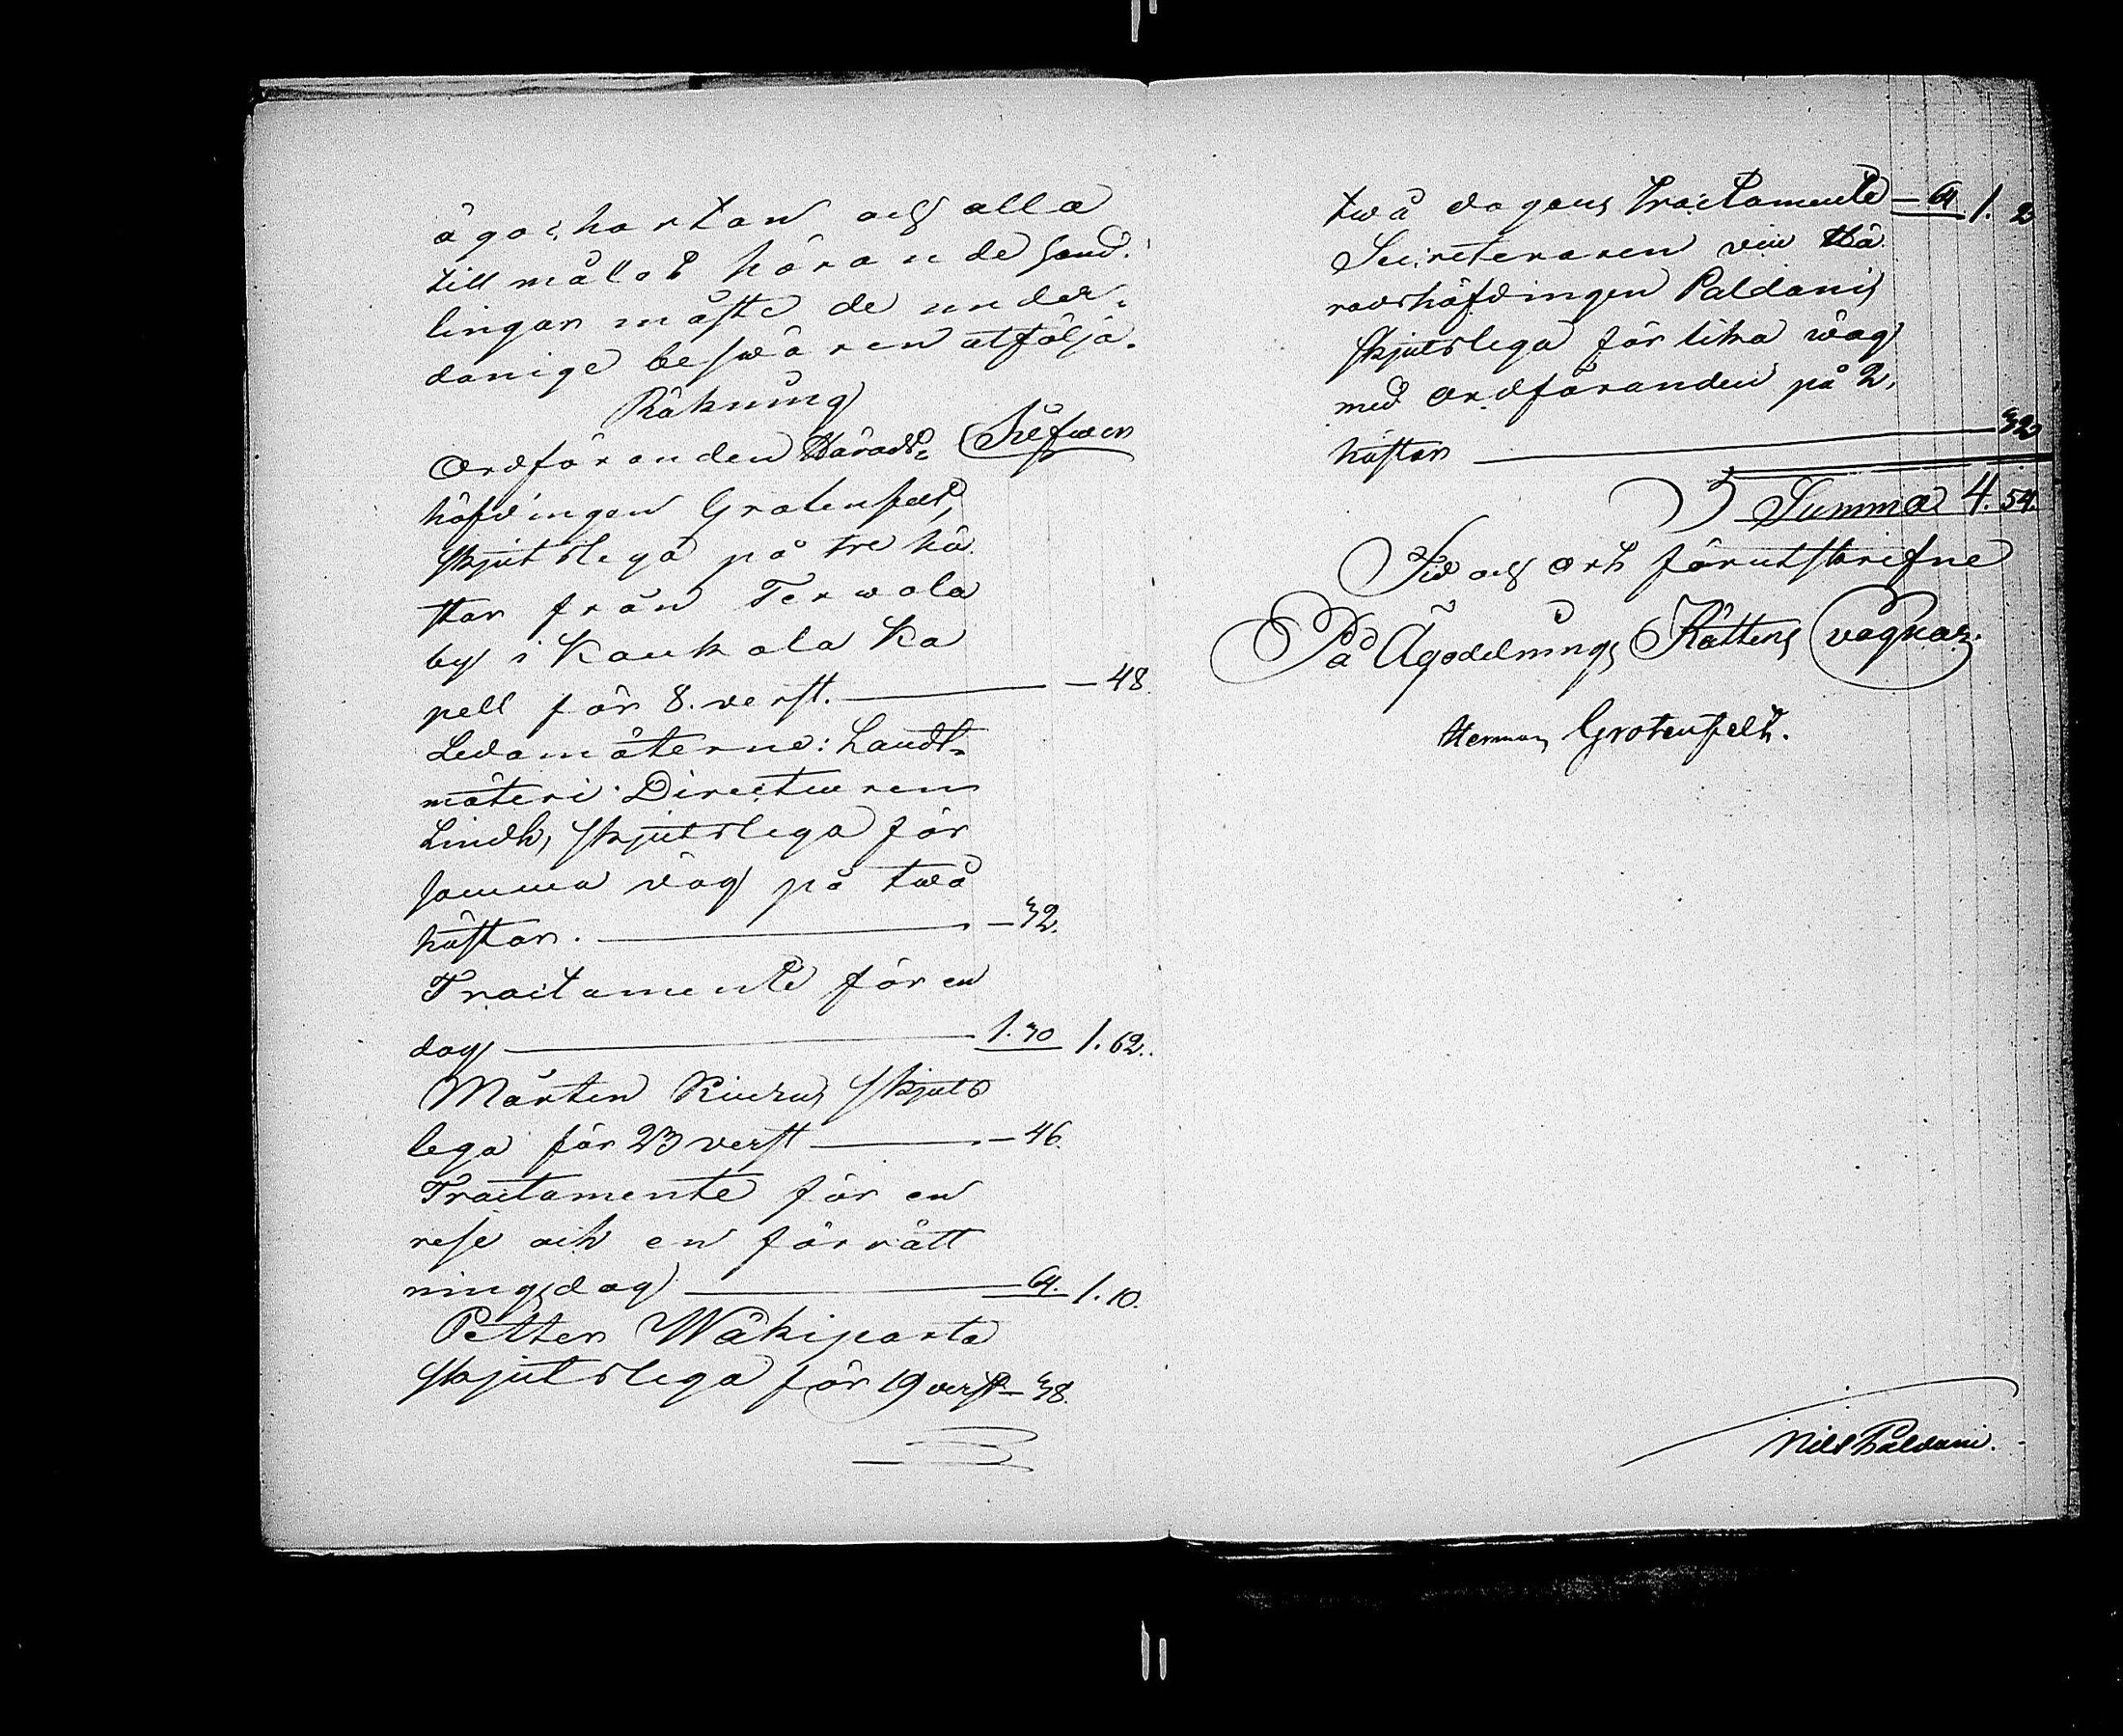 ägochartan och alla
till målet hörande hand-
lingar måste de under-
danige beswären åtfölja.
Räkning
Ordföranden Härads- Silfwer
höfdingen Grotenfelt,
skjutslega på tre hä
star från Terwola
by i Kaukola Ka
pell för 8. verst. — 48.
Ledamöterne: Landt-
mäteri Directeuren
Lindh, skjutslega för
samma väg på twå
hästar. — 32.
Tractamente för en
dag — 1.30 1.62.
Mårten skjuts
lega för 23 verst — 46.
Tractamente för en
rese och en förrätt
ningsdag — 64. 1.10.
Petter Wäkiparta
skjutslega för 19 verst — 38.
två dagars Tractamente — 64 1. 2
Secreteraren vice Hä
radshöfdingen Paldani,
skjutslega för lika wäg
med Ordföranden på 2,
hästar — 32
Summa 4. 54.
Tid och Ort förutskrifne
På Ägodelnings Rättens vägnar.
Herman Grotenfelt.
Nils Paldani.